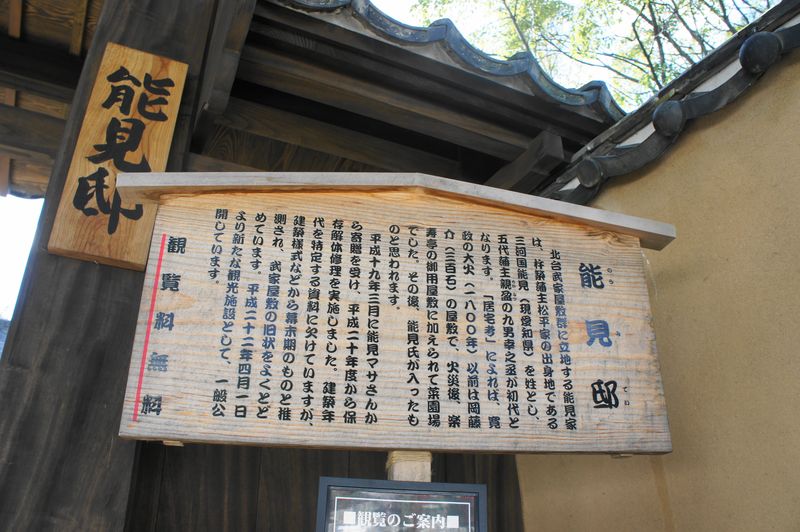 能見邸
能見邸
のう み てい
北台武家屋敷群に立地する能見家
は、杵築藩主松平家の出身地である
三河国能見(現愛知県)を姓とし、
五代藩主親盈の九男幸之丞が初代と
なります。「居宅考」によれば、寛
政の大火(一八〇〇年)以前は岡藤
介(三百石)の屋敷で、火災後、楽
寿亭の御用屋敷に加えられて菜園場
でした。その後、能見氏が入ったも
のと思われます。
平成十九年三月に能見マサさんか
ら寄贈を受け、平成二十年度から保
存解体修理を実施しました。建築年
代を特定する資料に欠けていますが、
建築様式などから幕末期のものと推
測され、武家屋敷の旧状をよくとど
めています。平成二十二年四月一日
より新たな観光施設として、一般公
開しています。
観覧料無料
■観覧のご案内■